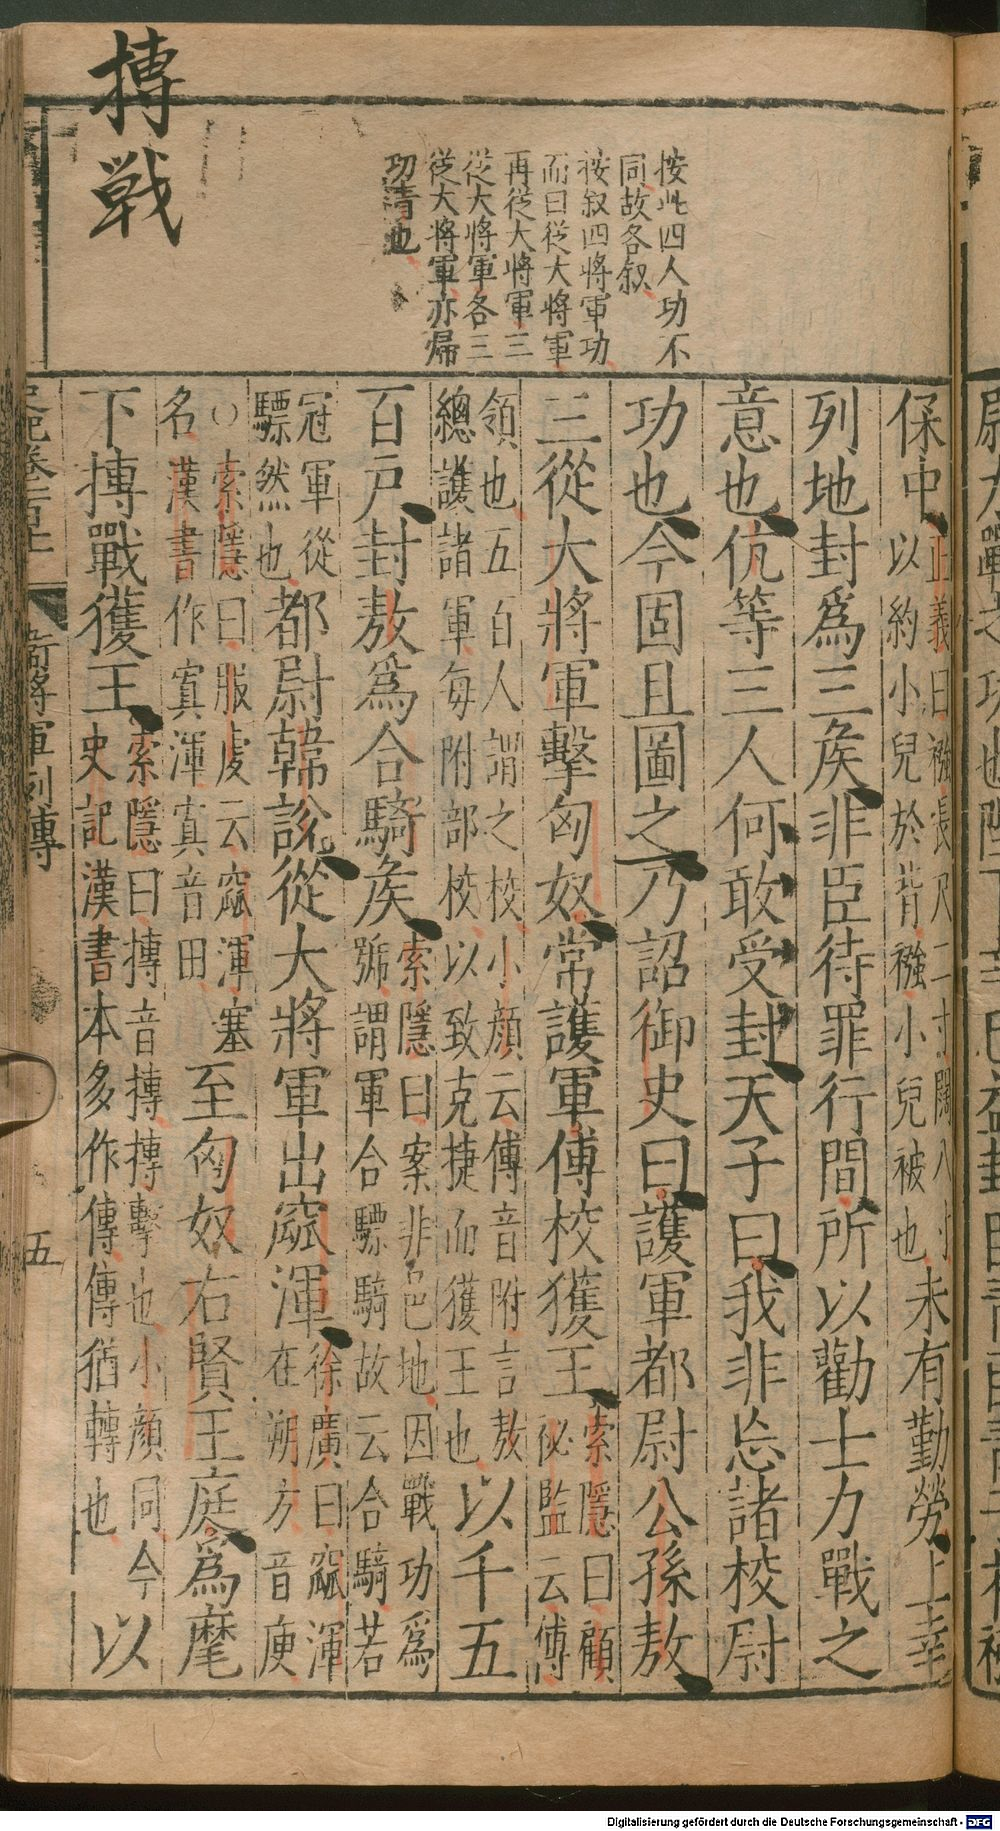 搏戦
按此四人功不
同故各叙
按叙四將軍功
而曰從大將軍
再從大將軍三
從大將軍各三
從大將軍亦歸
功青也
保中
正義曰襁長尺二寸闊八寸
以約小兒於背襁小兒被也
未有勤勞上幸
列地封爲三矦非臣待罪行間所以勸士力戰之
意也伉等三人何敢受封天子曰我非忘諸校尉
功也今固且圖之乃詔御史曰護軍都尉公孫敖
三從大將軍擊匈奴常護軍傅校獲王
索隱曰顧
祕監云傅
領也五百人謂之校小顔云傅音附言敖
總護諸軍每附部校以致克捷而獲王也
以千五
百戸封敖爲合騎矦
索隱曰案非邑地因戰功爲
號謂軍合驃騎故云合騎若
冠軍從
驃然也
都尉韓說從大將軍出窳渾
徐廣曰窳渾
在朔方音庾
○索隱曰服虔云窳渾塞
名漢書作寘渾寘音田
至匈奴右賢王庭爲麾
下搏戰獲王
索隱曰摶音摶摶擊也小顔同今
史記漢書本多作傳傳猶轉也
以
衛將軍列傳
五
Digitalisierung gefördert durch die Deutsche Forschungsgemeinschaft - DFG